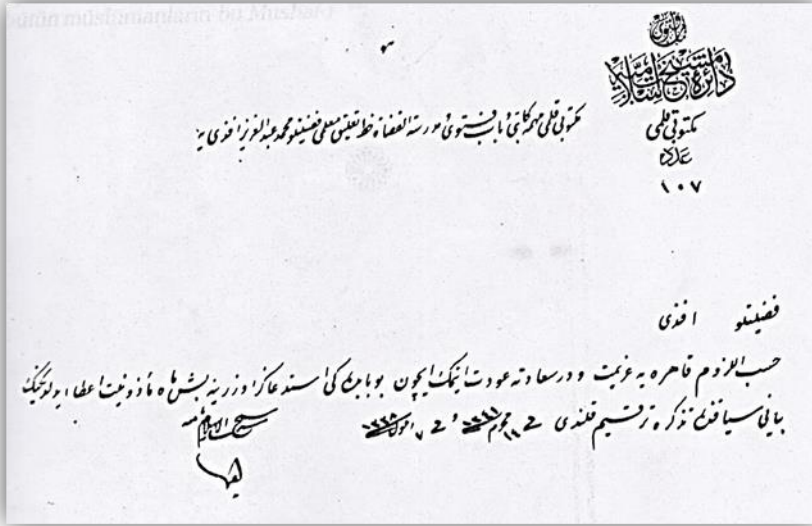 bütün müslümanların bu Mushaf-ı
باب فتوى
دائرۀ مشيخت اسلاميه
مكتوبى قلمى
عدد
١٠٧
مكتوبى قلمى مهمه كاتبى و باب فتوى و مدرسة القضاة خط تعليق معلمى فضيلتلو محمد عبدالعزيز افندى يه
فضيلتلو افندى
حسب اللزوم قاهره يه عزيمت و درسعادته عودت ايتمك ايچون بو بابده كى استدعاكز اوزرينه بش ماه مأذونيت اعطا ايدلديكنك
بيانى سياقنده تذكره ترقيم قلندى فى ١١ محرم و فى ٧
شيخ الاسلام نامنه